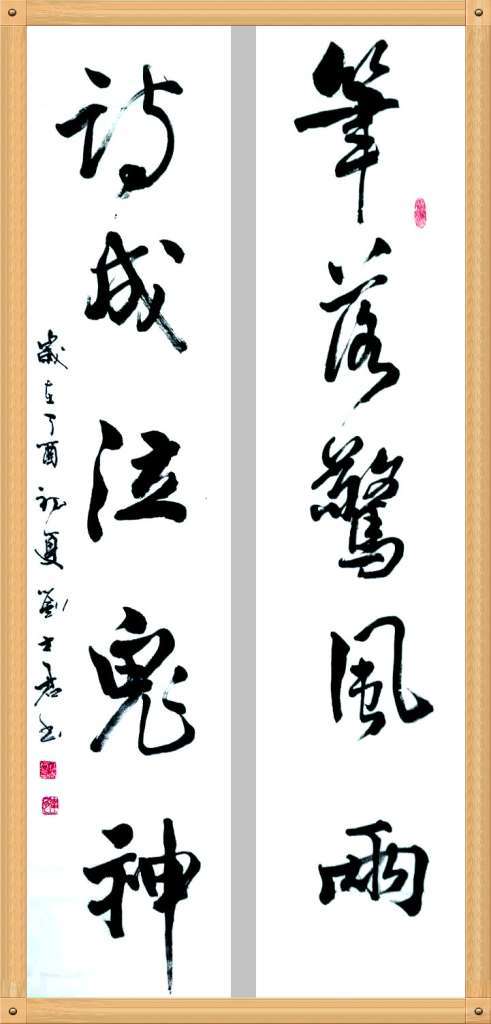 筆落驚風雨
詩成泣鬼神
歲在丁酉初夏劉士書